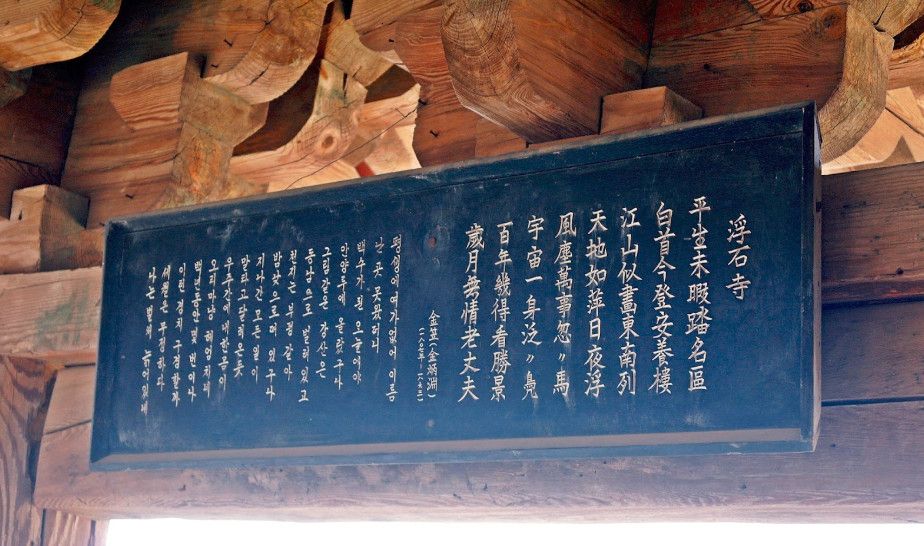 浮石寺
平生未暇踏名區
白首今登安養樓
江山似畵東南列
天地如萍日夜浮
風塵萬事忽〃馬
宇宙一身泛〃鳧
百年幾得看勝景
歲月無情老丈夫
金笠(金炳淵)
평생에 여가 없어 이름
난 곳 못 왔더니
백수가 된 오늘에야
안양루에 올랐구나
그림 같은 강산은
동남으로 벌려 있고
천지는 부평 같아
밤낮으로 떠 있구나
지나간 모든 일이
말타고 달려온 듯
우주간에 내 한몸이
오리마냥 헤엄치네
백년동안 몇번이나
이런 경치 구경할까
세월은 무정하다
나는 벌써 늙어있네